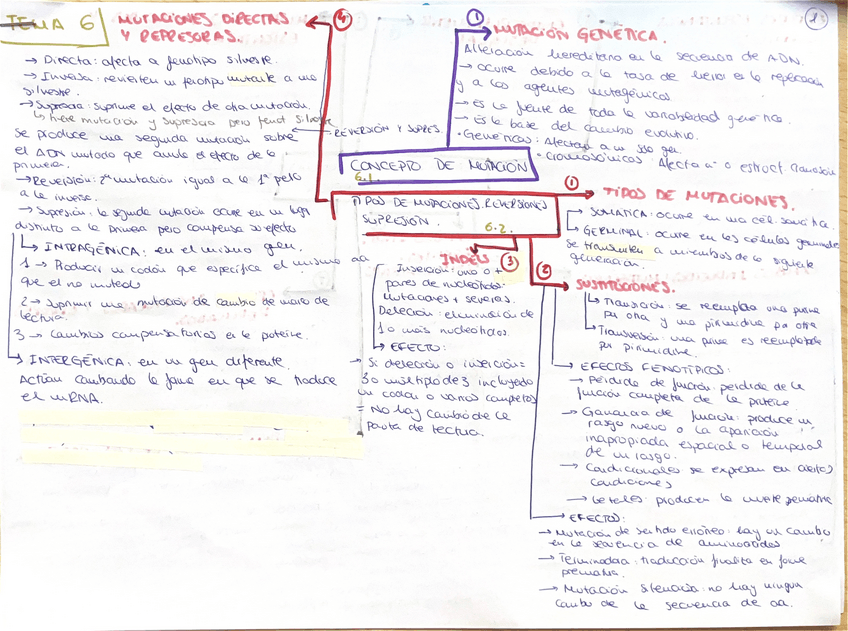 TEMA 6
MUTACIONES DIRECTAS
Y REPRESORAS.
4
→ Directa: afecta a fenotipo silvestre.
→ Inversa: revierten un fenotipo mutante a uno
silvestre.
→ Supresora: suprime el efecto de otra mutación.
tiene mutación y supresora pero fenot silvestre
REVERSIÓN Y SUPRES.
Se produce una segunda mutación sobre
el ADN mutado que anule el efecto de la
primera.
→ Reversión: 2ª mutación igual a la 1ª pero
a la inversa.
→ Supresión: la segunda mutación ocurre en un lugar
distinto a la primera pero compensa su efecto
→ INTRAGÉNICA: en el mismo gen.
1 → Producir un codón que especifica el mismo aa
que el no mutado
2 → Suprimir una mutación de cambio de marco de
lectura.
3 → Cambios compensatorios en la proteína.
→ INTERGÉNICA: en un gen diferente.
Actúan cambiando la forma en que se traduce
el mRNA.
1
MUTACIÓN GENÉTICA.
Alteración hereditaria en la secuencia de ADN.
→ Ocurre debido a la tasa de error en la replicación
y a los agentes mutagénicos.
→ Es la fuente de toda la variabilidad genética.
→ Es la base del cambio evolutivo.
• Genéticas: Afectan a un solo gen.
• Cromosómicas: Afecta nº o estruct. cromosóm
CONCEPTO DE MUTACIÓN
6.1.
TIPOS DE MUTACIONES. REVERSIONES
SUPRESIÓN.
6.2.
1
TIPOS DE MUTACIONES.
→ SOMÁTICA: ocurre en una cél. somática.
→ GERMINAL: ocurre en las células germinales
se transmiten a miembros de la siguiente
generación.
INDELS
3
Inserción: uno o +
pares de nucleótidos.
mutaciones + severas.
Deleción: eliminación de
1 o más nucleótidos.
→ EFECTO:
→ Si deleción o inserción =
3 o múltiplo de 3 incluyendo
un codón o varios completos
= No hay cambio de la
pauta de lectura.
2
SUSTITUCIONES.
→ Transición: se reemplaza una purina
por otra y una pirimidina por otra
→ Transversión: una purina es reemplazada
por pirimidina.
→ EFECTOS FENOTÍPICOS:
→ Pérdida de función: pérdida de la
función completa de la proteína
→ Ganancia de función: produce un
rasgo nuevo o la aparición
inapropiada espacial o temporal
de un rasgo.
→ Condicionales se expresan en ciertas
condiciones
→ Letales: producen la muerte prematura
→ EFECTO:
→ Mutación de sentido erróneo: hay un cambio
en la secuencia de aminoácidos
→ Terminadora: traducción finaliza en forma
prematura.
→ Mutación silenciosa: no hay ningún
cambio de la secuencia de aa.